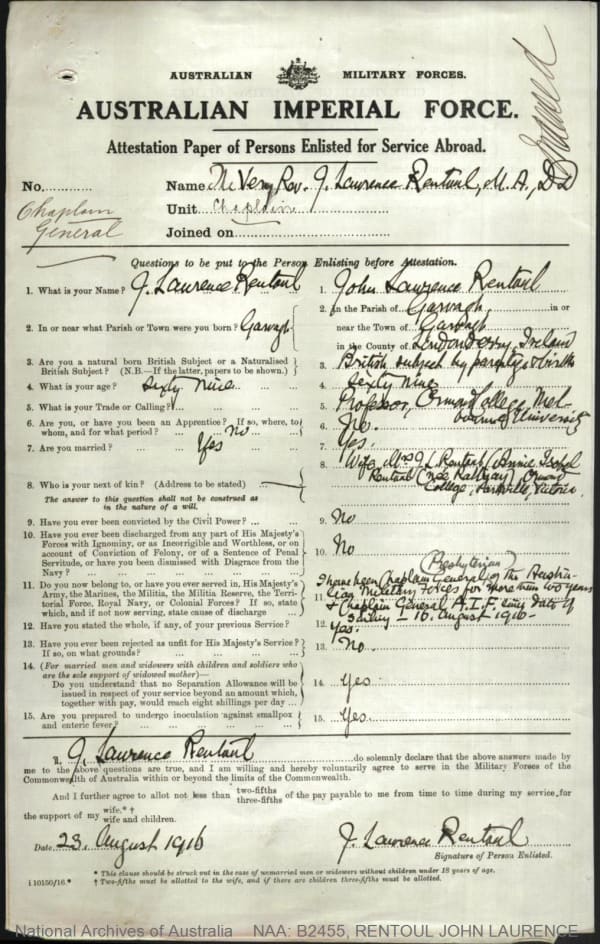 Indexed
AUSTRALIAN MILITARY FORCES.
AUSTRALIAN IMPERIAL FORCE.
Attestation Paper of Persons Enlisted for Service Abroad.
No.............
Name The Very Rev. J. Lawrence Rentoul, M.A., DD
Chaplain
General
Unit Chaplain
Joined on
Questions to be put to the Person Enlisting before Attestation.
1. What is your Name? J. Lawrence Rentoul
1. John Lawrence Rentoul
2. In or near what Parish or Town were you born? Garvagh
2. In the Parish of Garvagh in or
near the Town of Garvagh
in the County of Londonderry, Ireland
3. Are you a natural born British Subject or a Naturalised
British Subject? (N.B.—If the latter, papers to be shown.)
3. British subject by parentage & birth
4. What is your age? sixty nine
4. sixty nine
5. What is your Trade or Calling?
5. Professor, Ormond College, Mel-
bourne University
6. Are you, or have you been an Apprentice? If so, where, to
whom, and for what period? No
6. No.
7. Are you married? Yes
7. Yes.
8. Who is your next of kin? (Address to be stated)
The answer to this question shall not be construed as
in the nature of a will.
8. Wife, Mrs J. L. Rentoul (Annie Isobel
Rentoul (née Rattray) Ormond
College, Parkville, Victoria.
9. Have you ever been convicted by the Civil Power? ...
9. No
10. Have you ever been discharged from any part of His Majesty's
Forces with Ignominy, or as Incorrigible and Worthless, or on
account of Conviction of Felony, or of a Sentence of Penal
Servitude, or have you been dismissed with Disgrace from the
Navy?
10. No
11. Do you now belong to, or have you ever served in, His Majesty's
Army, the Marines, the Militia, the Militia Reserve, the Terri-
torial Force, Royal Navy, or Colonial Forces? If so, state
which, and if not now serving, state cause of discharge
(Presbyterian)
I have been Chaplain General of the Austra-
11 lian Military Forces for more than two years
& Chaplain General A.I.F. since date of
– 16. August 1916–
12. Have you stated the whole, if any, of your previous Service?
12. Yes.
13. Have you ever been rejected as unfit for His Majesty's Service?
If so, on what grounds?
13. No.
14. (For married men and widowers with children and soldiers who
are the sole support of widowed mother)—
Do you understand that no Separation Allowance will be
issued in respect of your service beyond an amount which,
together with pay, would reach eight shillings per day ...
14. Yes.
15. Are you prepared to undergo inoculation against smallpox
and enteric fever?
15. Yes.
I, J. Lawrence Rentoul do solemnly declare that the above answers made by
me to the above questions are true, and I am willing and hereby voluntarily agree to serve in the Military Forces of the
Commonwealth of Australia within or beyond the limits of the Commonwealth.
And I further agree to allot not less than two-fifths three-fifths of the pay payable to me from time to time during my service for
the support of my wife.* † wife and children.
Date 23. August 1916
J. Lawrence Rentoul
Signature of Person Enlisted.
* This clause should be struck out in the case of unmarried men or widowers without children under 18 years of age.
† Two-fifths must be allotted to the wife, and if there are children three-fifths must be allotted.
i 10150/16.*
National Archives of Australia NAA: B2455, RENTOUL JOHN LAURENCE